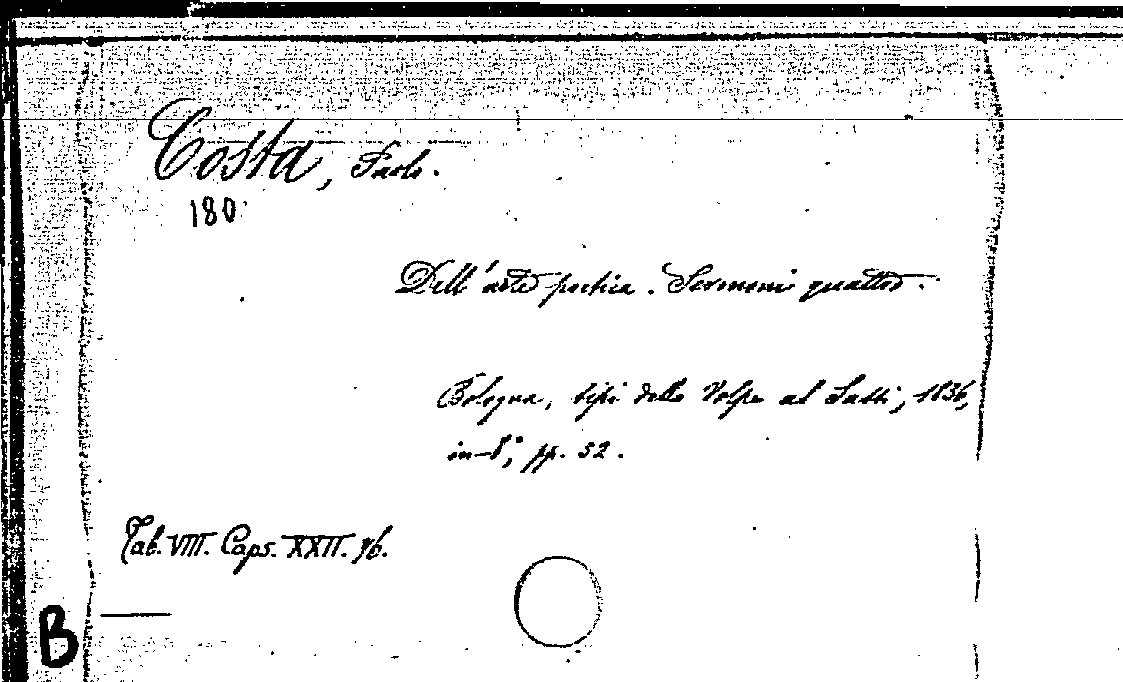 Costa, Paolo.
180
Dell'arte poetica. Sermoni quattro.
Bologna, tipi della Volpe al Sassi, 1836,
in-8°, pp. 52.
Tab. VIII. Caps. XXII. 96.
B